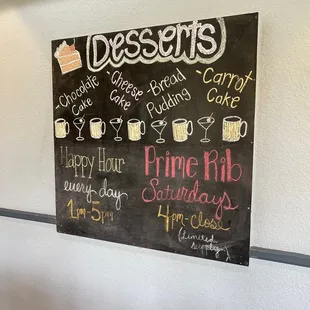 Desserts
-Chocolate Cake
-Cheese Cake
-Bread Pudding
-Carrot Cake
Happy Hour
every day
1pm-5pm
Prime Rib
Saturdays
4pm-close
(limited supply)